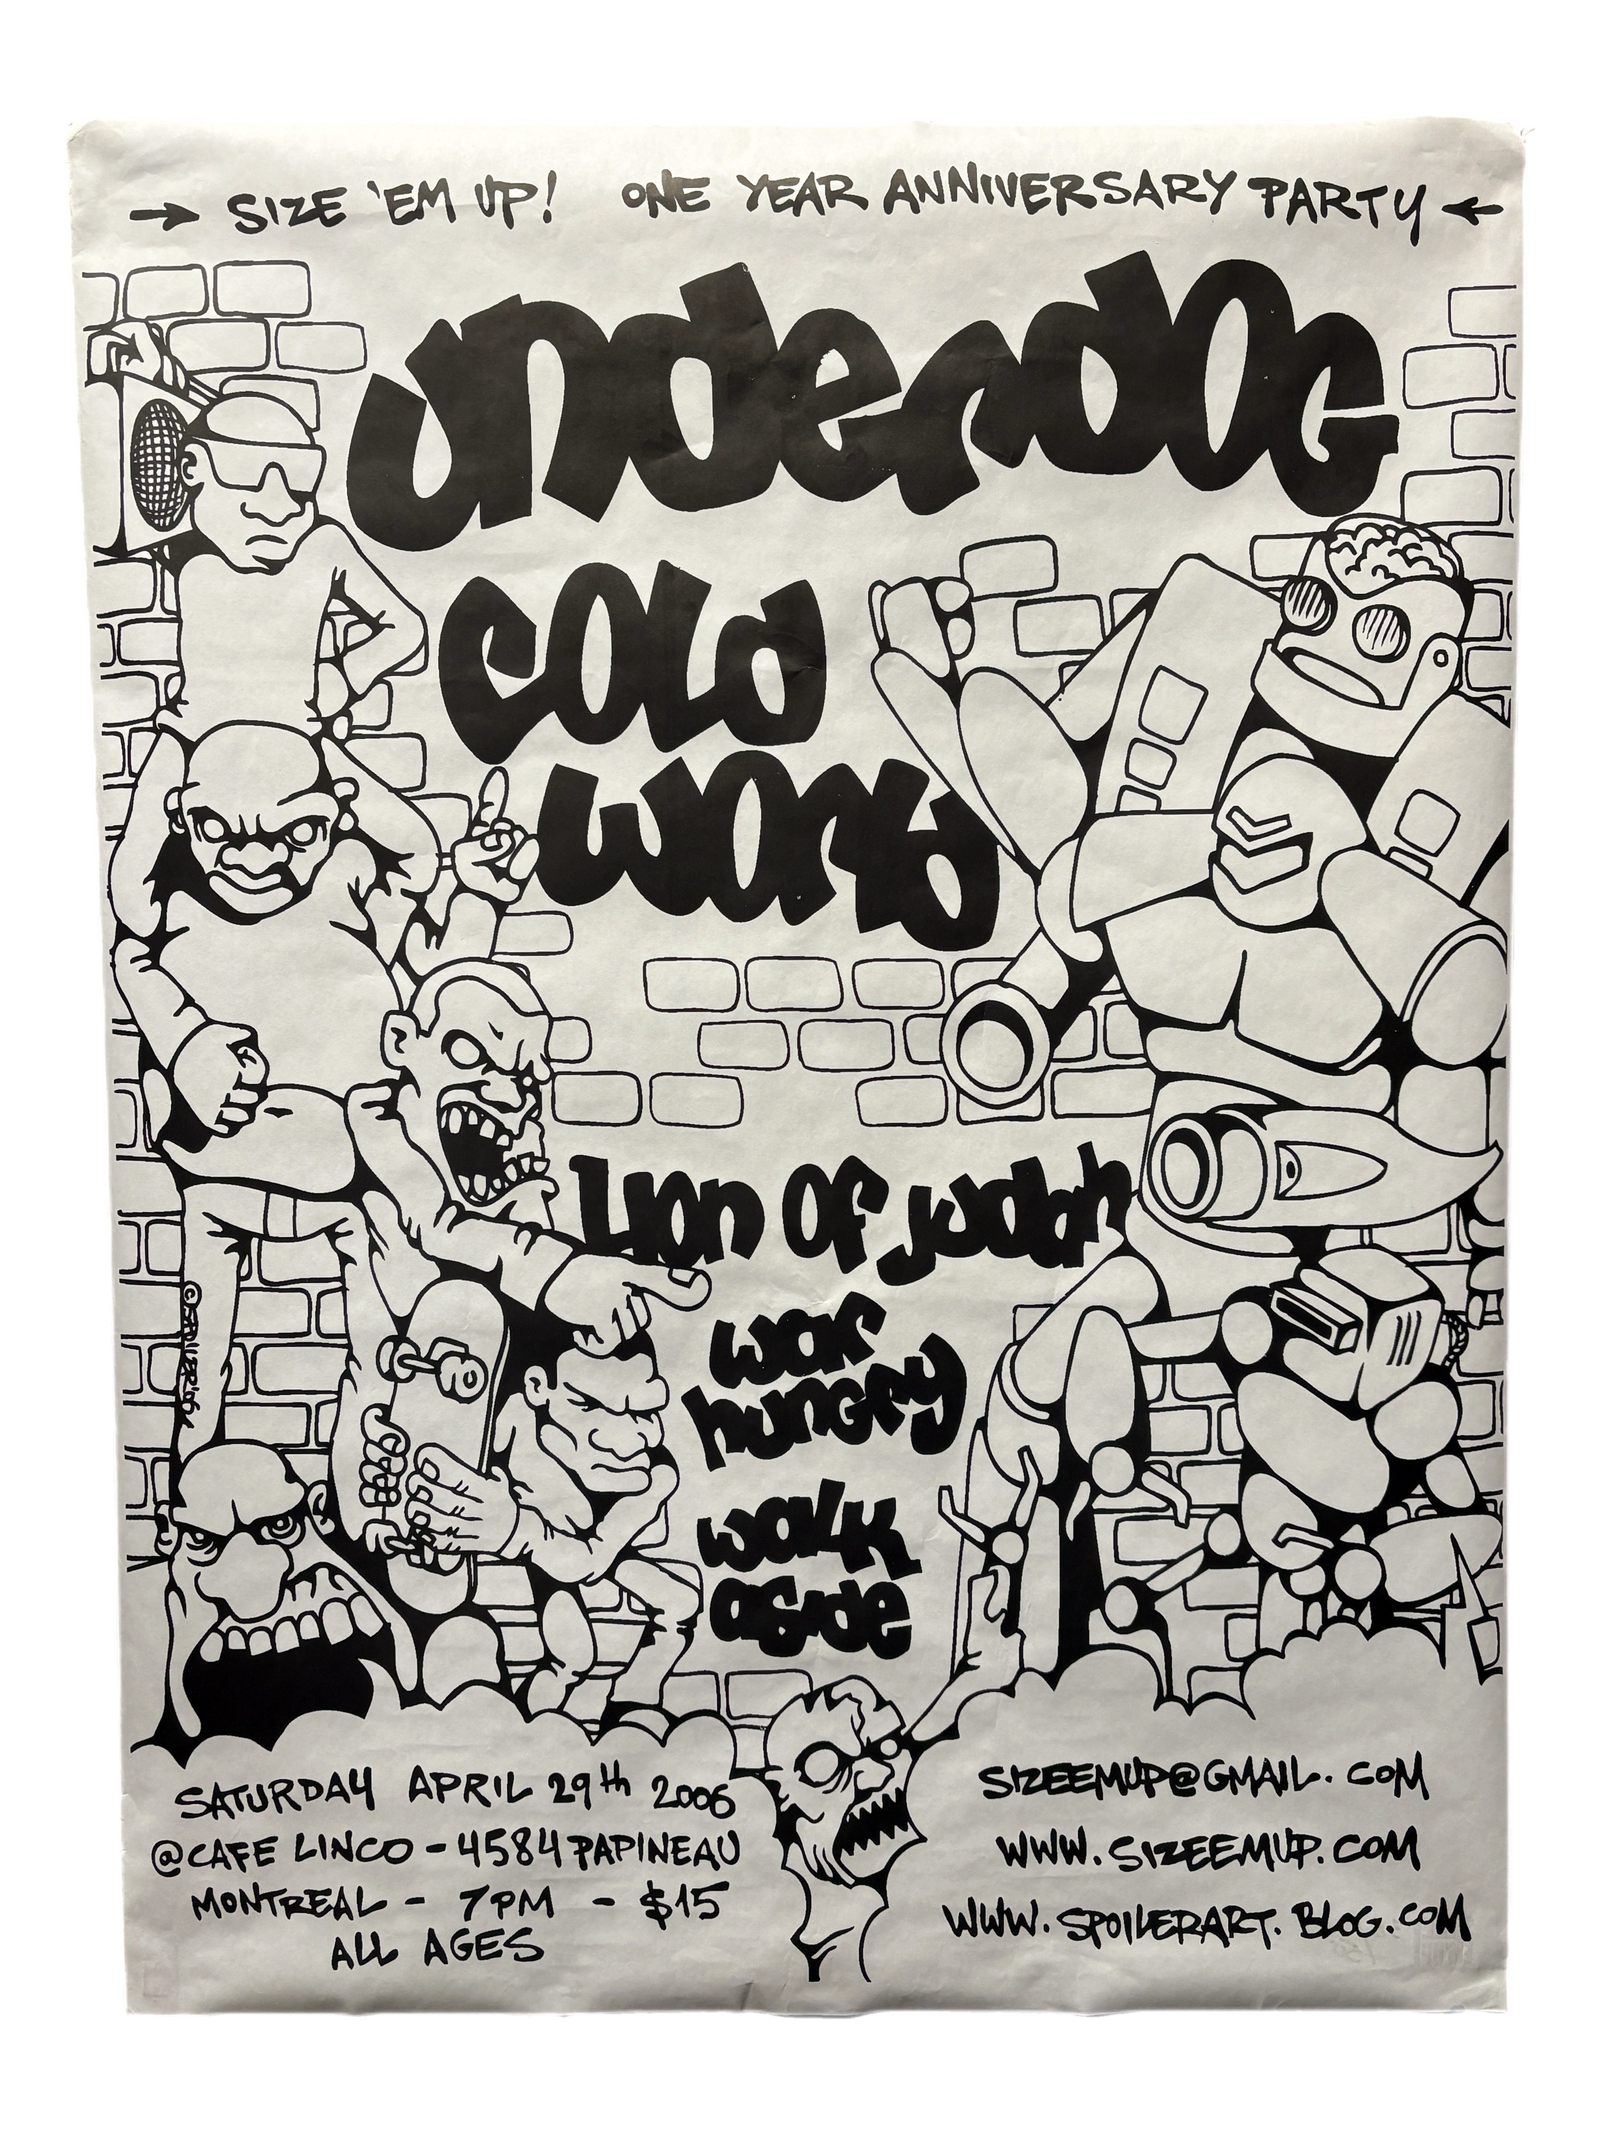 → SIZE 'EM UP! ONE YEAR ANNIVERSARY PARTY ←
underdOG
COLd
WOrLd
Lion OF judah
war
hungry
walk
aside
©SPOILER
SATURDAY APRIL 29th 2006
@CAFE LINCO - 4584 PAPINEAU
MONTREAL - 7PM - $15
ALL AGES
SIZEEMUP@GMAIL.COM
WWW.SIZEEMUP.COM
WWW.SPOILERART.BLOG.COM